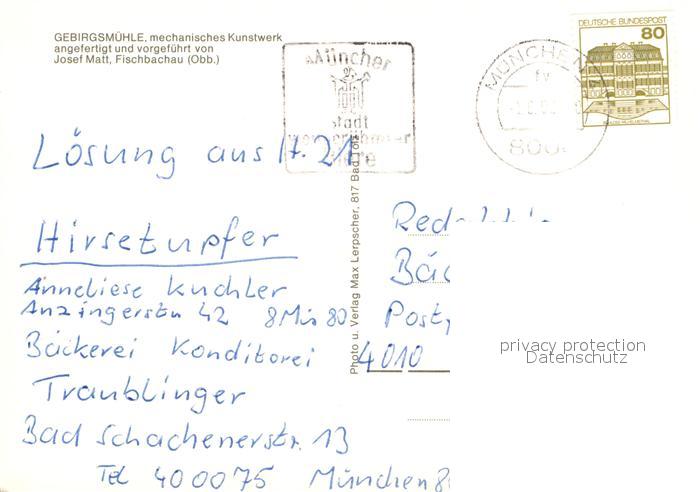 GEBIRGSMÜHLE, mechanisches Kunstwerk
angefertigt und vorgeführt von
Josef Matt, Fischbachau (Obb.)
Münchner
Stadt
DEUTSCHE BUNDESPOST
80
MÜNCHEN
Lösung aus H. 21
Hirsetupfer
Anneliese Kuchler
Anzingerstr 42 8 Mü 80
Bäckerei Konditorei
Traublinger
Bad Schachenerstr. 13
Tel 400075 München 8
Photo u. Verlag Max Lerpscher, 817 Bad Tölz
Red
Bäc
Post
4010
privacy protection
Datenschutz